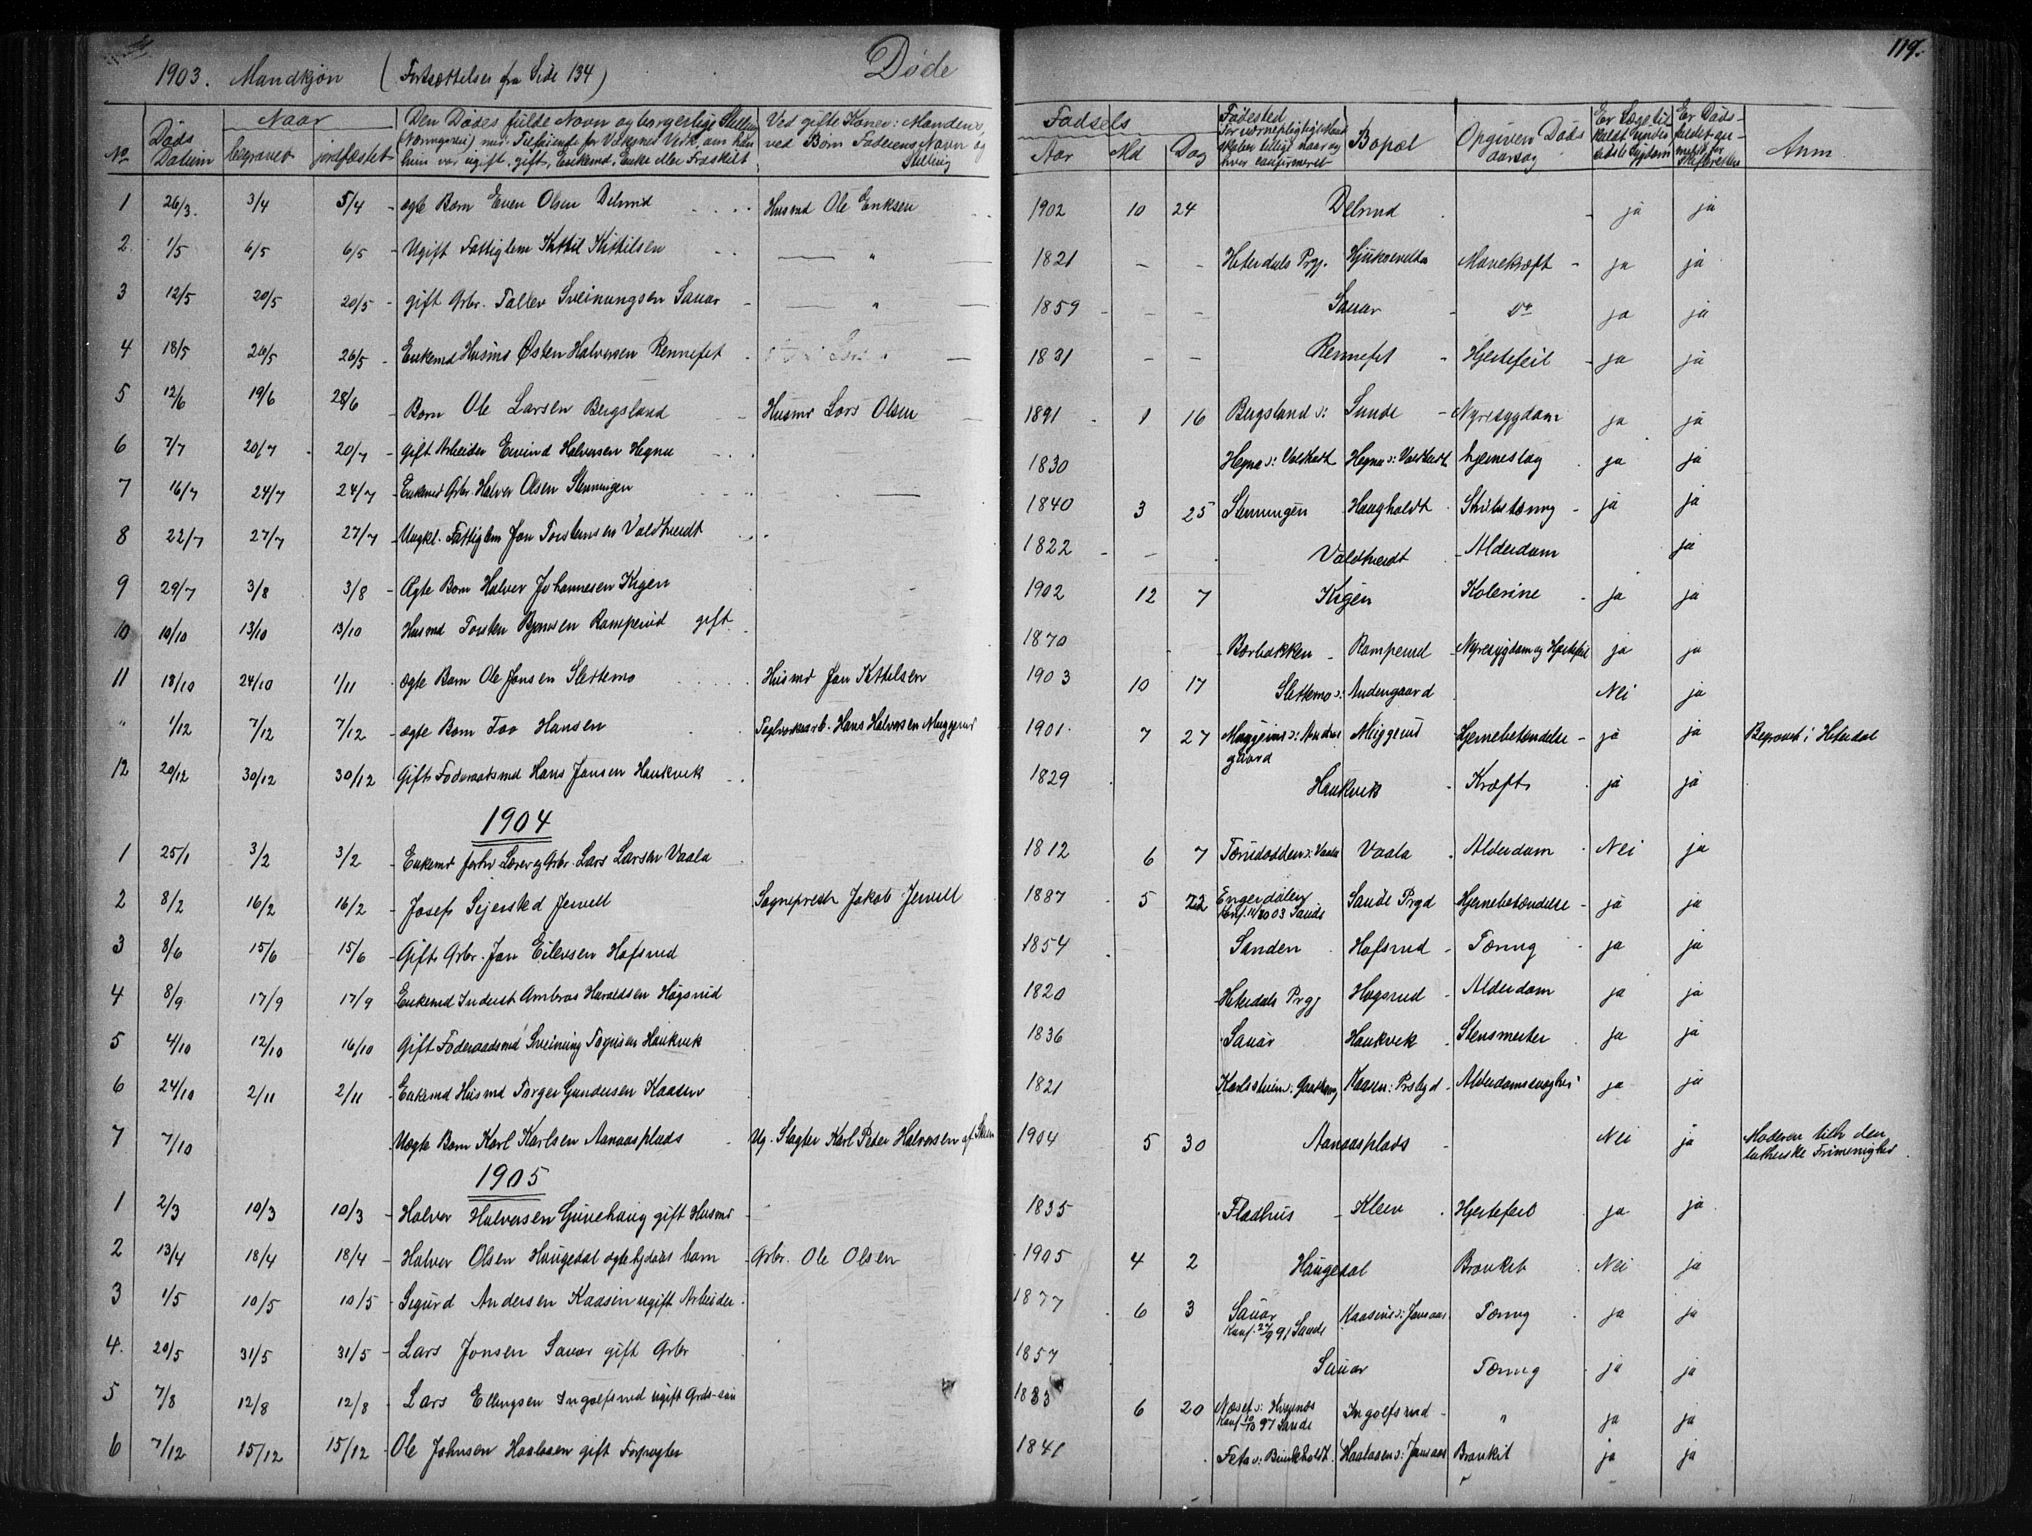 119.
1903. Mandkjøn (Fortsættelse fra Side 134) Døde
No Døds Datum Naar begravet jordfæstet Den Dødes fulde Navn og borgerlige Stilling (Næringsvei) med Tilføiende for Voksnes Vedk. om han hun var ugift, gift, Enkemd, Enke eller Fraskilt Ved gifte Koner: Mandens, ved Børn Faderens Navn og Stilling Fødsels Aar Md Dag Fødested Bopæl Opgiven Døds aarsag Anm
1 26/3. 3/4 5/4 - ægte Barn Even Olsen Delsrud Husmd Ole Eriksen 1902 10 24 Delsrud ja ja
2. 1/5 6/5 6/5 - Ugift Fattiglem Kittil Kittilsen " 1821 - - Heterdals Prgj. Mavekræft - ja ja
3 12/5 20/5 20/5 - gift Arbr. Tallev Sveinungsen Sauar " 1859 - - Sauar do ja ja
4 18/5 26/5 26/5 - Enkemd Husmd Østen Halvorsen Rennefet 1831 - - Rennefet - Hjertefeil - ja ja
5 12/6 19/6 28/6 - Barn Ole Larsen Bergsland Husmd Lars Olsen 1891 1 16 Bergsland s: Sunde - Nyresygdom ja ja
6 7/7 20/7 20/7 - gift Arbeider Eivind Halvorsen Hegna 1830 Hegna Hegna hjerneslag ja ja
7 16/7 24/7 24/7 - Enkemd Arbr. Halvor Olsen Stenningen 1840 3 25 Stenningen Haugholdt ja ja
8 22/7 27/7 27/7 - Ungkl. Fattiglem Jon Torstensen 1822 - - - Alderdom ja
9 29/7 3/8 3/8 - Ægte Barn Halvor Johannesen Kigen 1902 12 7 Kigen Kolerine ja ja
10 10/10 13/10 13/10 - Husmd Torsten Bjørnsen Ramperud gift 1870 Bærbakken - Ramperud - Nyresygdom og Hjertefeil ja ja
11 18/10 24/10 1/11 - ægte Barn Ole Jonsen Slettemo Husmd Jon Kittelsen 1903 10 17 Slettemo s: Andengaard Nei ja
" 1/12 7/12 7/12 - ægte Barn Tov Hansen Teglverksarb. Hans Halvorsen Muggerud 1901. 7 27 Muggerud Hjernebetændelse - ja ja Begravet i Heterdal
12 20/12 30/12 30/12 Gift Føderaadsmd Hans Jonsen Haukvik 1829 Haukvik Kræft ja ja
1904
1 25/1 3/2 3/2 - Enkemd forhv Lærer og Arbr. Lars Larsen Vaala 1812 6 7 Vaala - Alderdom Nei ja
2 8/2 16/2 16/2 - Josef Sejersted Jervell Sogneprest Jakob Jervell 1887 5 22 Engerdalen Saude Prgd Hjernebetændelse - ja ja
3 8/6 15/6 15/6 - Gift Arbr. Jon Eilevsen Hafsrud 1854 Sanden Hafsrud - Tæring ja ja
4 8/9 17/9 17/9 - Enkemd Inderst Ambros Haroldsen Høgsrud 1820 Heterdals Prgj Høgsrud - Alderdom ja ja
5 4/10 12/10 16/10 Gift Føderaadsmd Sveinung Haukvik 1836 Sauar Haukvik - Stensmerter ja ja
6 24/10 2/11 2/11 - Enkemd Husmd Torger Gundersen Kaasen 1821 Kaasen: Prstgd - Alderdomssvaghed ja ja
7 7/10 Uægte Barn Karl Karlsen Aanaasplads - Ug. Slagter Karl Peter Halvorsen af Skien 1904 5 30 Aanaasplads - Nei ja Moderen tilh den lutherske Frimenighed
1905
1 2/3 10/3 10/3 - Halvor Halvorsen Gunehaug gift Husmd - 1835 Fladhus - Kleiv Hjertefeil ja ja
2 13/4 18/4 18/4 - Halvor Olsen Haugedal ægte hjdøbt barn - Arbr. Ole Olsen 1905 4 2 Haugedal Bronkit Nei ja
3 1/5 10/5 10/5 - Sigurd Andersen Kaasin ugift Arbeider 1877 6 3 Sauar Konf. 27/9 91 Saude Kaasin s: Jønaas Tæring ja ja
4. 20/5 31/5 31/5 - Lars Jonsen Sauar gift Arbr 1857 Sauar Tæring ja ja
5 7/8 12/8 12/8 - Lars Ellingsen Ingolfsrud ugift 1883 6 20 Ingolfsrud - " ja ja
6 7/12 15/12 15/12 - Ole Johnsen Haalaaen gift Forpagter 1841 Haalaaen s: Jønaas Bronkit ja ja